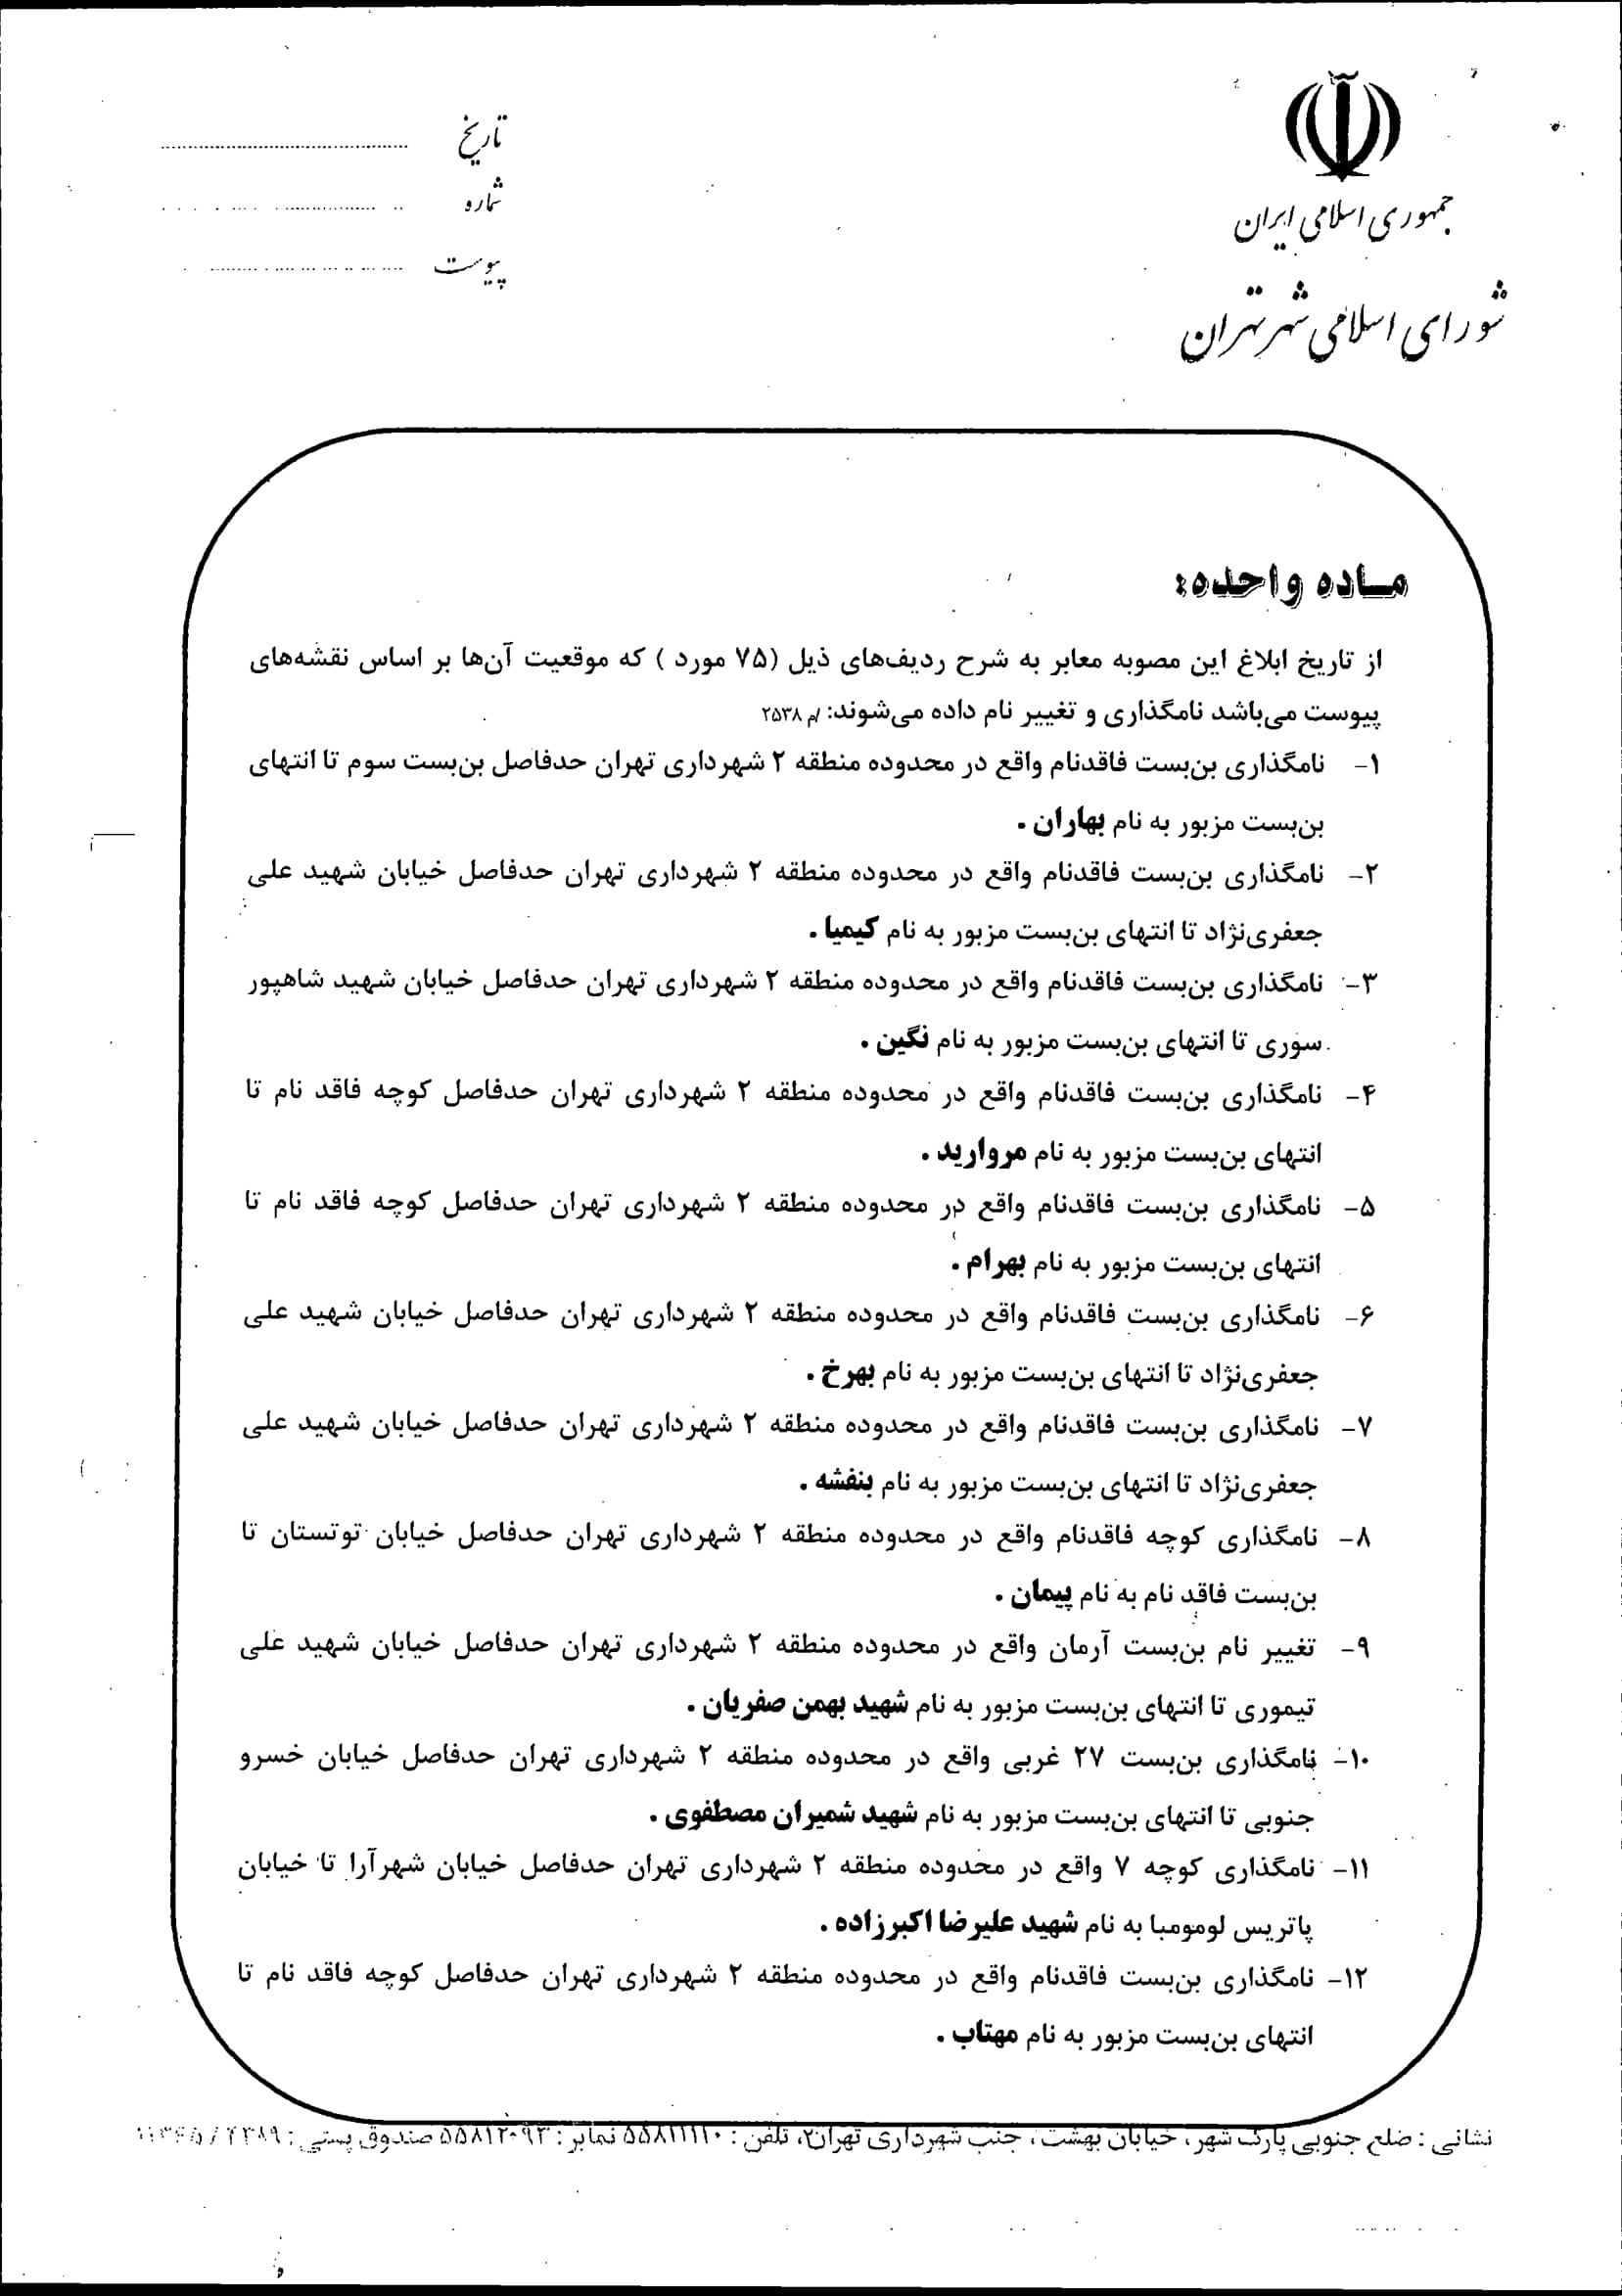 جمهوری اسلامی ایران
شورای اسلامی شهر تهران
تاریخ
شماره
پیوست
ماده واحده:
از تاریخ ابلاغ این مصوبه معابر به شرح ردیف‌های ذیل (۷۵ مورد ) که موقعیت آن‌ها بر اساس نقشه‌های
پیوست می‌باشد نامگذاری و تغییر نام داده می‌شوند: /م ۲۵۳۸
۱- نامگذاری بن‌بست فاقدنام واقع در محدوده منطقه ۲ شهرداری تهران حدفاصل بن‌بست سوم تا انتهای
بن‌بست مزبور به نام بهاران .
۲- نامگذاری بن‌بست فاقدنام واقع در محدوده منطقه ۲ شهرداری تهران حدفاصل خیابان شهید علی
جعفری‌نژاد تا انتهای بن‌بست مزبور به نام کیمیا .
۳- نامگذاری بن‌بست فاقدنام واقع در محدوده منطقه ۲ شهرداری تهران حدفاصل خیابان شهید شاهپور
سوری تا انتهای بن‌بست مزبور به نام نگین .
۴- نامگذاری بن‌بست فاقدنام واقع در محدوده منطقه ۲ شهرداری تهران حدفاصل کوچه فاقد نام تا
انتهای بن‌بست مزبور به نام مروارید .
۵- نامگذاری بن‌بست فاقدنام واقع در محدوده منطقه ۲ شهرداری تهران حدفاصل کوچه فاقد نام تا
انتهای بن‌بست مزبور به نام بهرام .
۶- نامگذاری بن‌بست فاقدنام واقع در محدوده منطقه ۲ شهرداری تهران حدفاصل خیابان شهید علی
جعفری‌نژاد تا انتهای بن‌بست مزبور به نام بهرخ .
۷- نامگذاری بن‌بست فاقدنام واقع در محدوده منطقه ۲ شهرداری تهران حدفاصل خیابان شهید علی
جعفری‌نژاد تا انتهای بن‌بست مزبور به نام بنفشه .
۸- نامگذاری کوچه فاقدنام واقع در محدوده منطقه ۲ شهرداری تهران حدفاصل خیابان توتستان تا
بن‌بست فاقد نام به نام پیمان .
۹- تغییر نام بن‌بست آرمان واقع در محدوده منطقه ۲ شهرداری تهران حدفاصل خیابان شهید علی
تیموری تا انتهای بن‌بست مزبور به نام شهید بهمن صفریان .
۱۰- نامگذاری بن‌بست ۲۷ غربی واقع در محدوده منطقه ۲ شهرداری تهران حدفاصل خیابان خسرو
جنوبی تا انتهای بن‌بست مزبور به نام شهید شمیران مصطفوی .
۱۱- نامگذاری کوچه ۷ واقع در محدوده منطقه ۲ شهرداری تهران حدفاصل خیابان شهرآرا تا خیابان
پاتریس لومومبا به نام شهید علیرضا اکبرزاده .
۱۲- نامگذاری بن‌بست فاقدنام واقع در محدوده منطقه ۲ شهرداری تهران حدفاصل کوچه فاقد نام تا
انتهای بن‌بست مزبور به نام مهتاب .
نشانی : ضلع جنوبی پارک شهر، خیابان بهشت، جنب شهرداری تهران، تلفن : نمابر : صندوق پستی :